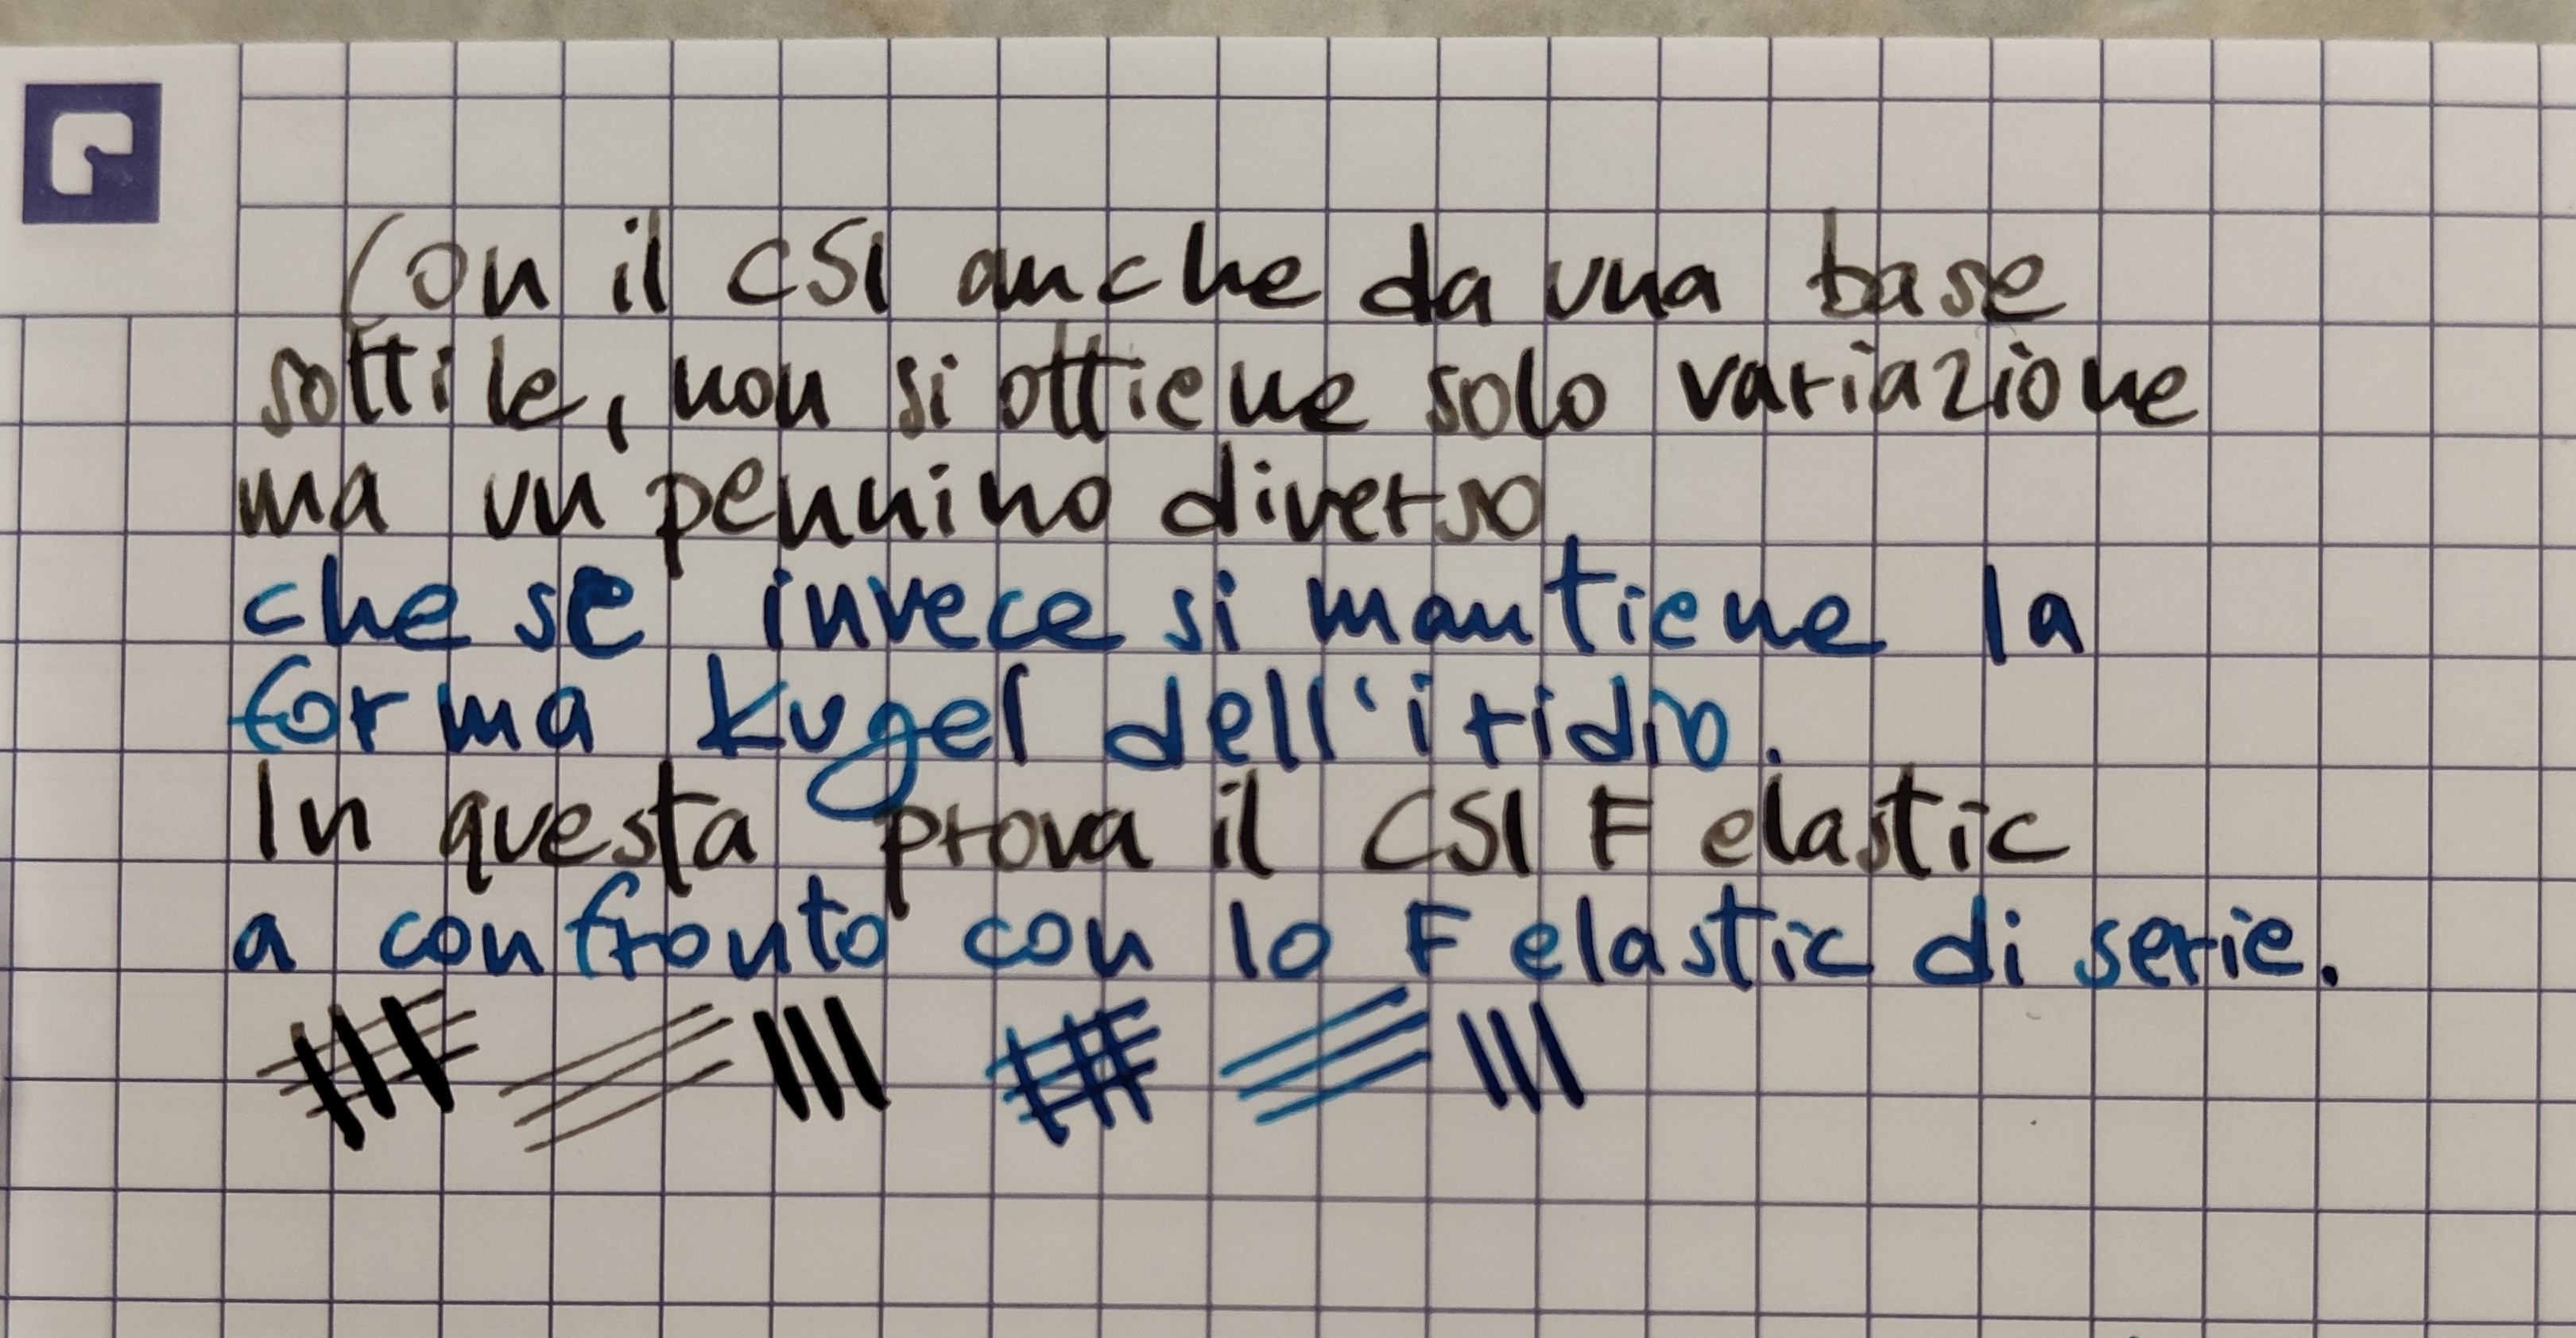 Con il CSI anche da una base
sottile, non si ottiene solo variazione
ma un pennino diverso
che se invece si mantiene la
forma kugel dell'iridio.
In questa prova il CSI F elastic
a confronto con lo F elastic di serie.